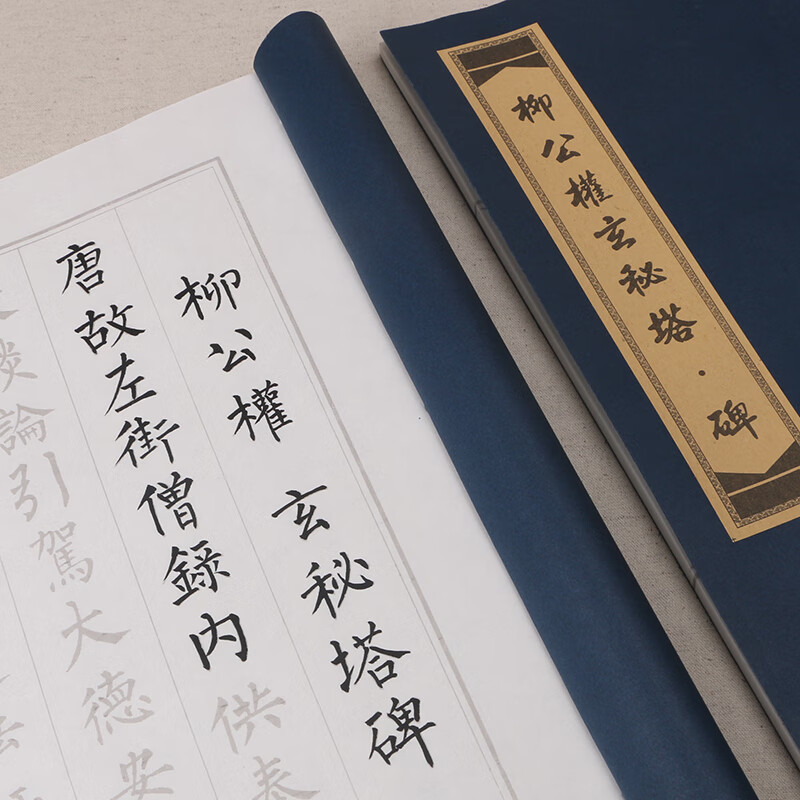 柳公權 玄秘塔碑
唐故左街僧錄內供奉
談論引駕大德安
法
柳公權玄秘塔·碑